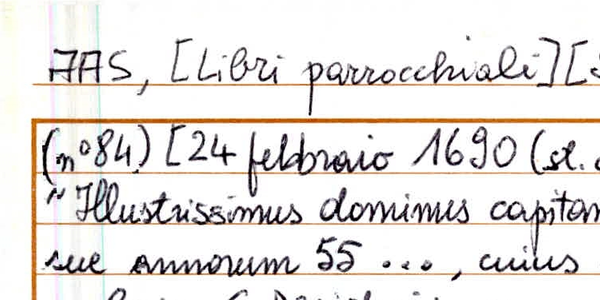 AAS, [Libri parrocchiali] [
(n° 84) [24 febbraio 1690 (st.
"Illustrissimus dominus capitan
sue annorum 55 ..., cuius